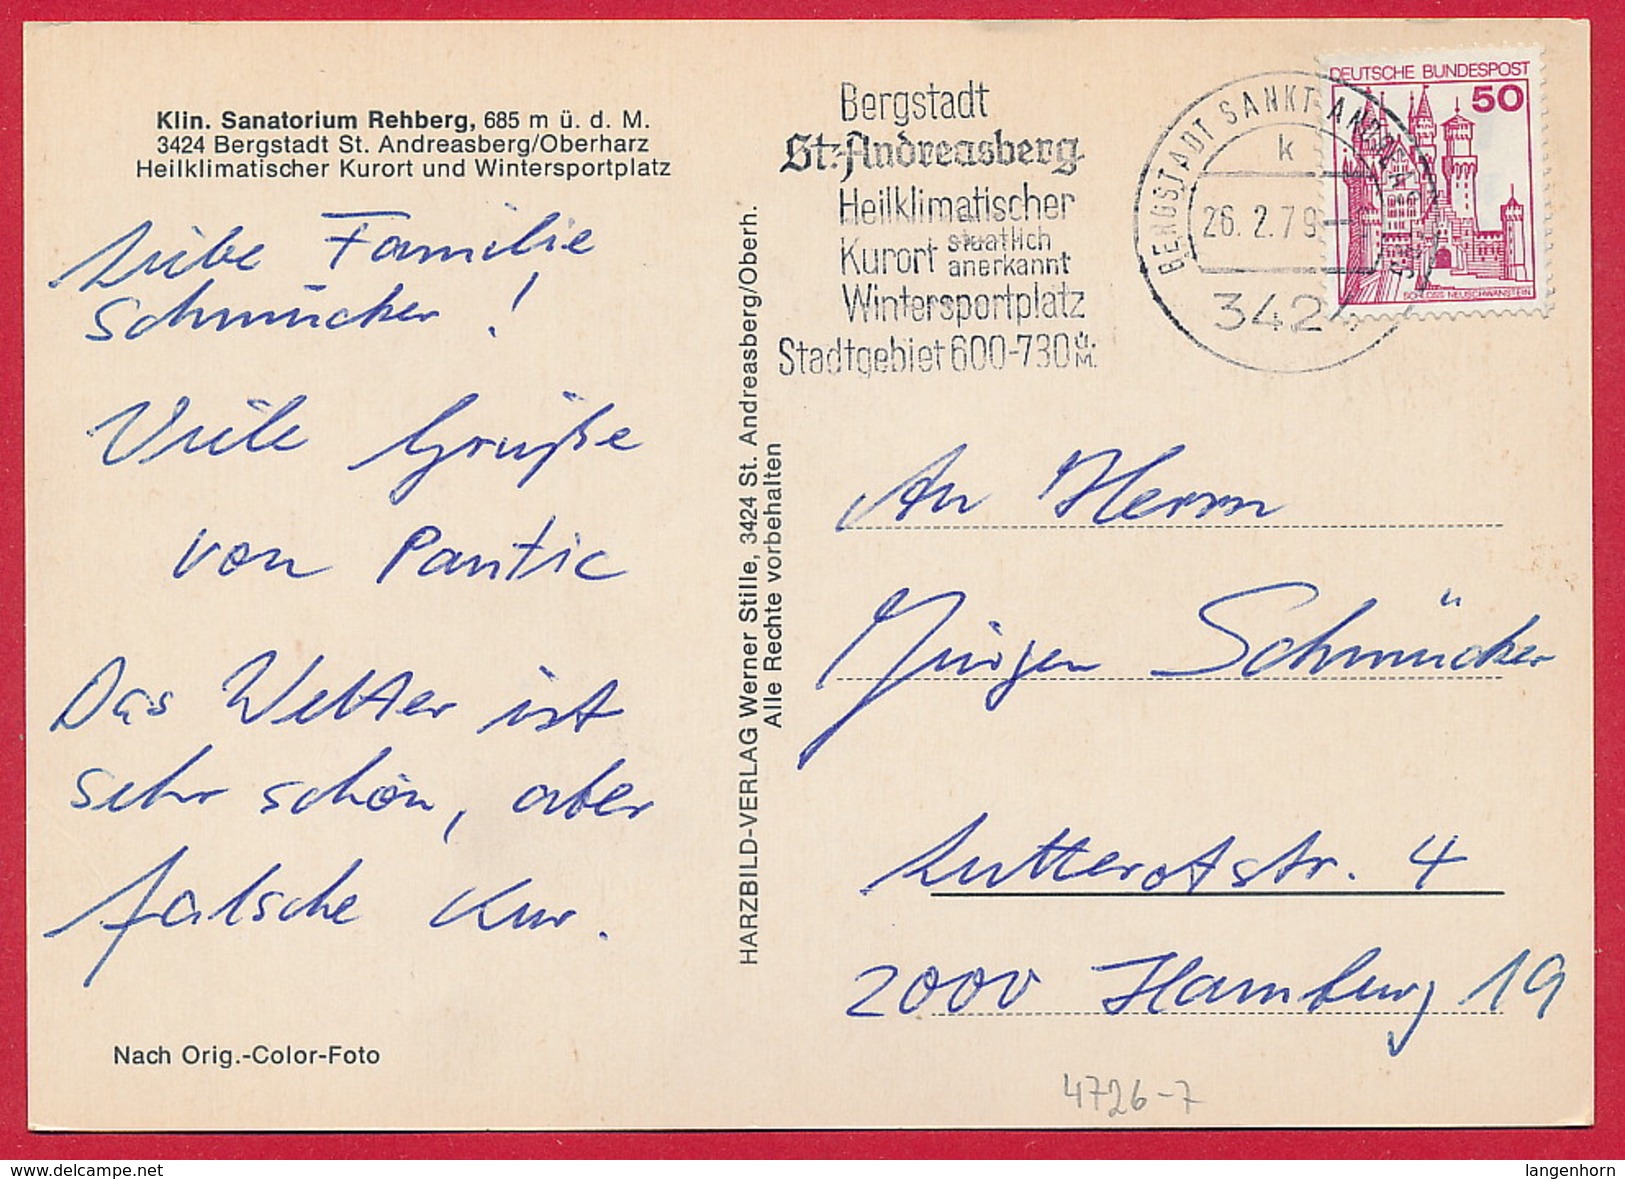 Klin. Sanatorium Rehberg, 685 m ü. d. M.
3424 Bergstadt St. Andreasberg/Oberharz
Heilklimatischer Kurort und Wintersportplatz
Liebe Familie
Schmücker !
Viele Grüße
von Pantic
Das Wetter ist
sehr schön, aber
falsche Kur.
Nach Orig.-Color-Foto
HARZBILD-VERLAG Werner Stille, 3424 St. Andreasberg/Oberh.
Alle Rechte vorbehalten
Bergstadt
St. Andreasberg
Heilklimatischer
Kurort staatlich anerkannt
Wintersportplatz
Stadtgebiet 600-730 ü. M.
BERGSTADT SANKT ANDREASBERG
k
26. 2. 79
3424
DEUTSCHE BUNDESPOST
50
SCHLOSS NEUSCHWANSTEIN
An Herrn
Jürgen Schmücker
Lutterotstr. 4
2000 Hamburg 19
4726-7
www.delcampe.net
langenhorn